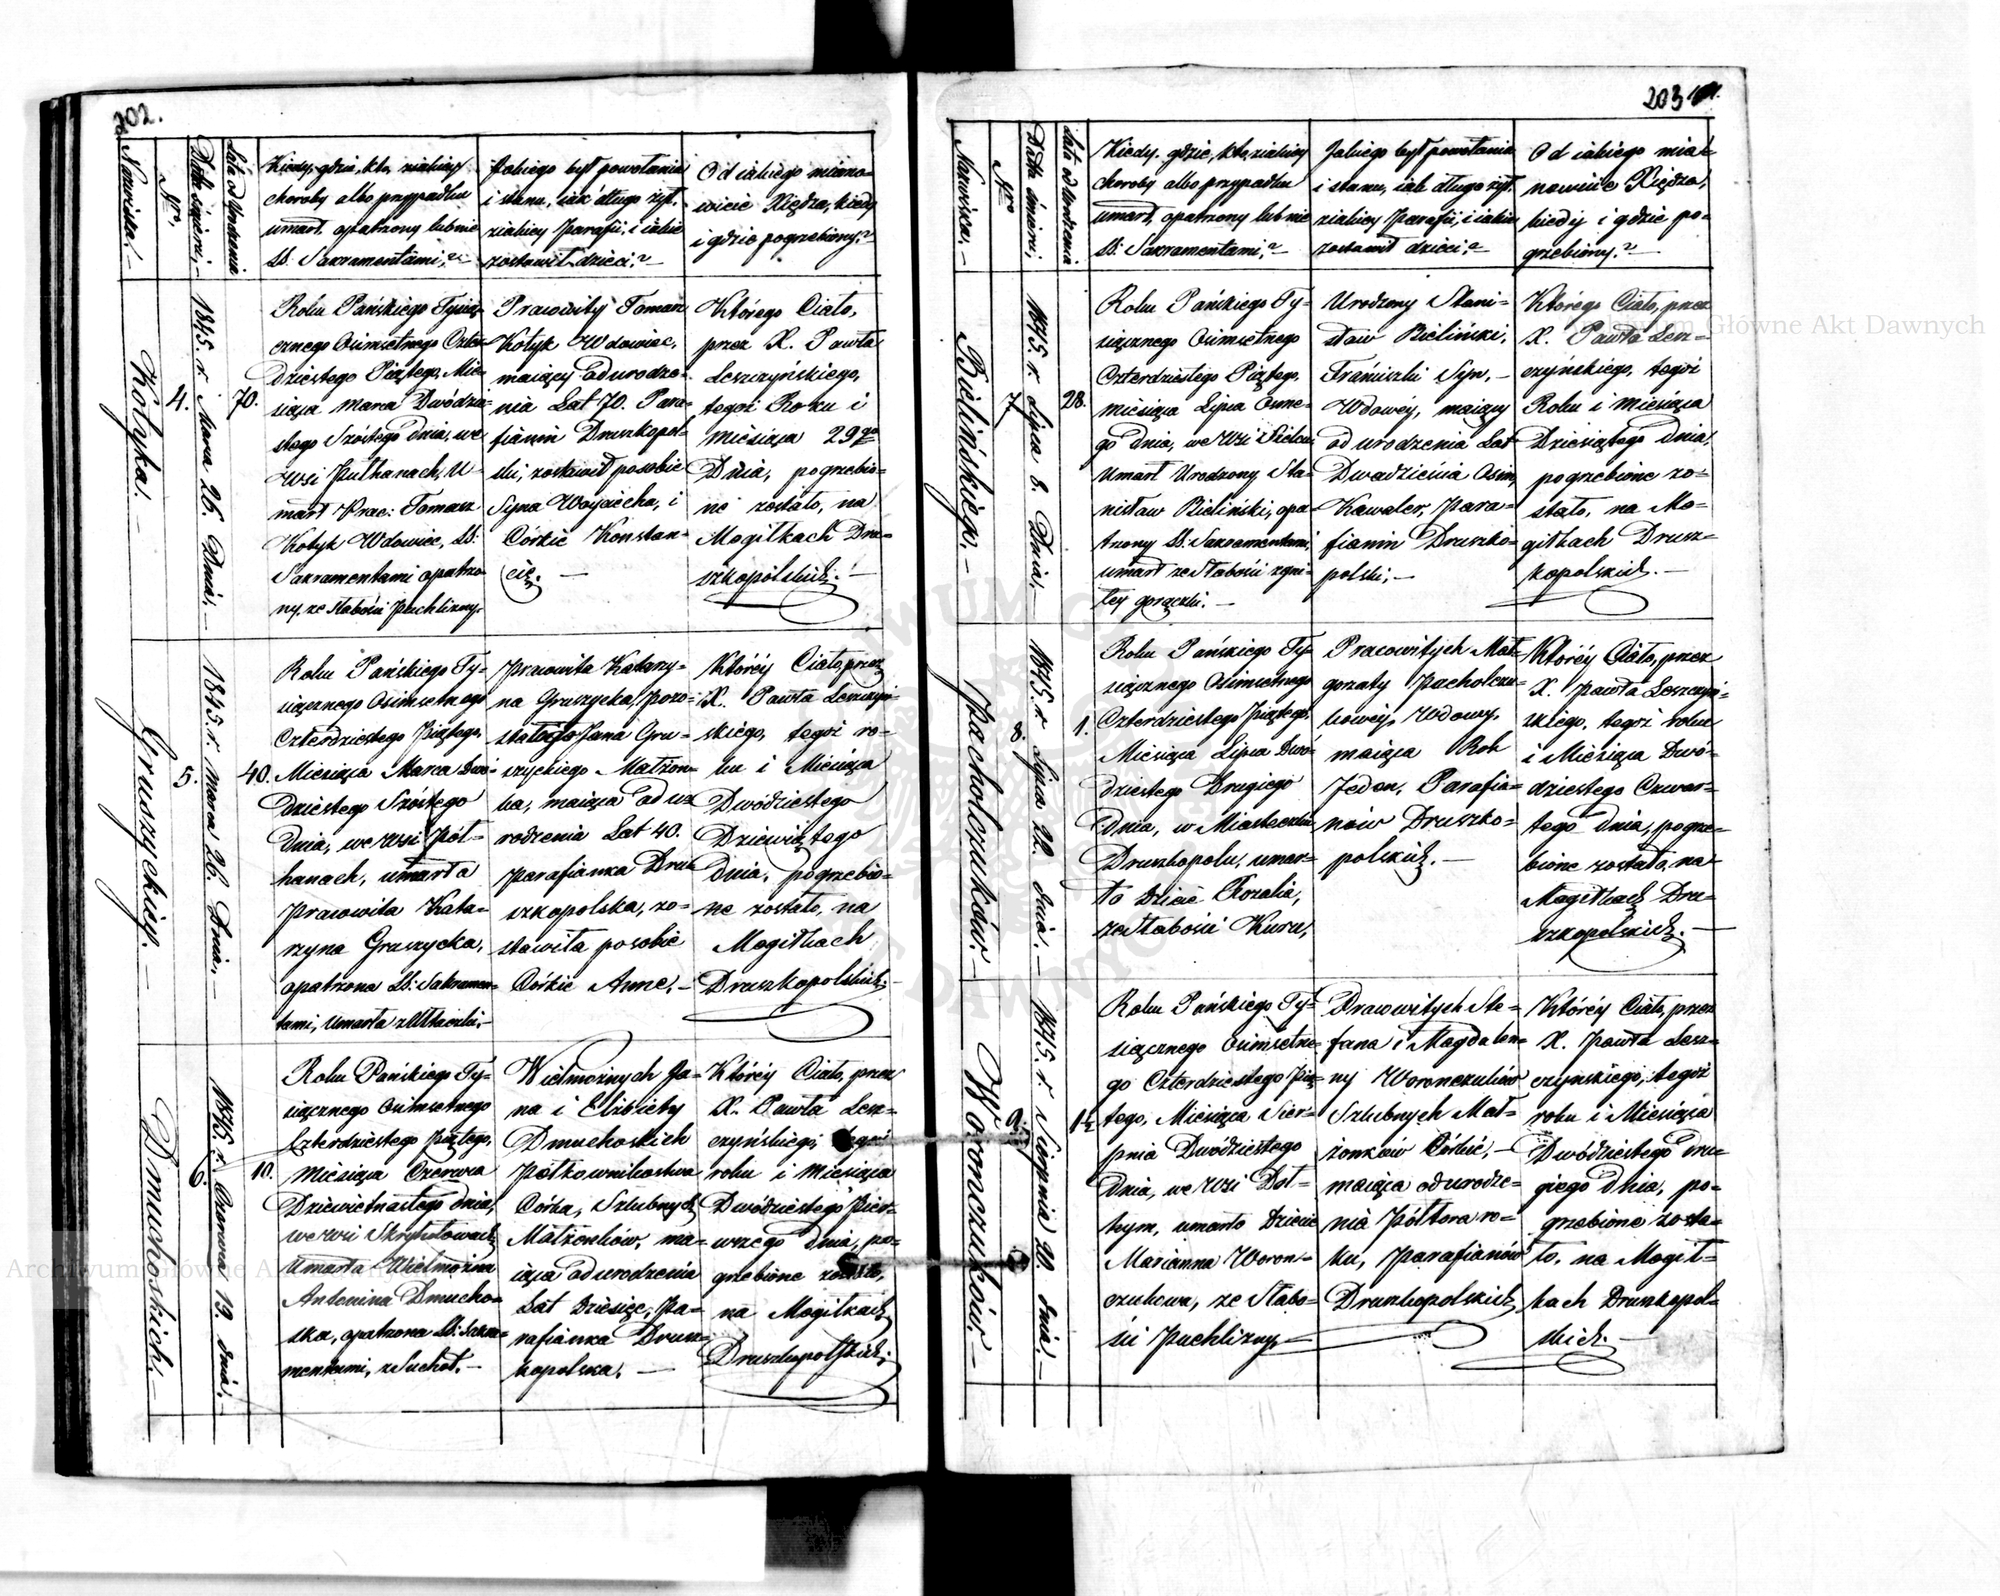 202.
Nazwiska.
Nro.
Data śmierci.
Lata od Urodzenia
Kiedy, gdzie, kto, z jakiey
choroby albo przypadku
umarł, opatrzony lub nie
SS. Sakramentami?
Jakiego był powołania
i stanu, iak długo żył,
z iakiey Parafii, i iakie
zostawił dzieci?
Od iakiego miano-
wicie Xiędza, kiedy
i gdzie pogrzebiony?
Kotyka.
4.
1845. r. Marca 26. Dnia.
70.
Roku Pańskiego Tysią-
cznego Ośmsetnego Czter-
dziestego Piątego, Mie-
siąca Marca Dwódzie-
stego Szóstego dnia, we
Wsi Pułhanach, U-
marł Prac: Tomasz
Kotyk Wdowiec, SS:
Sakramentami opatrzo-
ny, ze słabości Puchliny.
Pracowity Tomasz
Kotyk Wdowiec,
maiący od urodze-
nia Lat 70. Para-
fianin Druszkopol-
ski, zostawił po sobie
Syna Woyciecha, i
Córkie Konstan-
cię.
Którego Ciało,
przez X. Pawła
Leszczyńskiego,
tegoż Roku i
Miesiąca 29go
Dnia, pogrzebio-
ne zostało, na
Mogiłkach Dru-
szkopolskich.
Gruszyckiey.
5.
1845. r. Marca 26. Dnia.
40.
Roku Pańskiego Ty-
siącznego Ośmsetnego
Czterdziestego Piątego,
Miesiąca Marca Dwó-
dziestego Szóstego
Dnia, we wsi Pół-
hanach, umarła
Pracowita Kata-
rzyna Gruszycka,
opatrzona SS: Sakramen-
tami, umarła
Pracowita Katarzy-
na Gruszycka, pozo-
stała Jana Gru-
szyckiego Małżon-
ka, maiąca od u-
rodzenia Lat 40.
Parafianka Dru-
szkopolska, zo-
stawiła po sobie
Córkie Annę.
Którey Ciało, przez
X. Pawła Leszczyń-
skiego, tegoż ro-
ku i Miesiąca
Dwódziestego
Dziewiątego
Dnia, pogrzebio-
ne zostało, na
Mogiłkach
Druszkopolskich.
Dmuchoskich.
6.
1845. r. Czerwca 19. dnia.
10.
Roku Pańskiego Ty-
siącznego Ośmsetnego
Czterdziestego Piątego,
Miesiąca Czerwca
Dziewietnastego dnia,
we wsi
Umarła Wielmożna
Antonina Dmucho-
ska, opatrzona SS: Sakra-
mentami, z Suchot.
Wielmożnych Ja-
na i Elżbiety
Dmuchoskich
Półkownikostwa
Córka, Szlubnych
Małżonków, ma-
iąca od urodzenia
Lat Dziesięć, Pa-
rafianka Drusz-
kopolska.
Którey Ciało, przez
X. Pawła Lesz-
czyńskiego, tegoż
roku i Miesiąca
Dwódziestego Pier-
wszego dnia, po-
grzebione zostało,
na Mogiłkach
Druszkopolskich.
203
Nazwiska.
Nro
Data śmierci.
Lata od Urodzenia
Kiedy, gdzie, kto, z iakiey
choroby albo przypadku
umarł, opatrzony lub nie
SS. Sakramentami?
Jakiego był powołania
i stanu, iak długo żył,
z iakiey Parafii, i iakie
zostawił dzieci?
Od iakiego mia-
nowicie Xiędza,
kiedy i gdzie po-
grzebiony?
Bielińskiego.
7.
1845. r. Lipca 8. Dnia.
28.
Roku Pańskiego Ty-
siącznego Ośmsetnego
Czterdziestego Piątego,
Miesiąca Lipca Osme-
go Dnia, we Wsi
Umarł Urodzony Sta-
nisław Bieliński, opa-
trzony SS: Sakramentami,
umarł ze słabości zgni-
łey gorączki.
Urodzony Stani-
sław Bieliński,
Franciszki Syn,
Wdowéy, maiący
od urodzenia Lat
Dwadzieścia Ośm,
Kawaler, Para-
fianin Druszko-
polski;
Którego Ciało, przez
X. Pawła Lesz-
czyńskiego, tegoż
Roku i Miesiąca
Dziesiątego dnia,
pogrzebione zo-
stało, na Mo-
giłkach Drusz-
kopolskich.
Pachołczuków.
8.
1845. r. Lipca 22. dnia.
1.
Roku Pańskiego Ty-
siącznego Ośmsetnego
Czterdziestego Piątego,
Miesiąca Lipca Dwó-
dziestego Drugiego
Dnia, w Miasteczku
Druszkopolu, umar-
ło Dziecie Rozalia,
ze słabości Kuru,
Pracowitych Mał-
gorzaty Pachołczu-
kowey, Wdowy,
maiąca Rok
Jeden, Parafia-
nów Druszko-
polskich.
Którey Ciało, przez
X. Pawła Leszczyń-
skiego, tegoż roku
i Miesiąca Dwó-
dziestego Czwar-
tego dnia, pogrze-
bione zostało, na
Mogiłkach Dru-
szkopolskich.
Worończuków.
9.
1845. r. Sierpnia 20. dnia.
1½
Roku Pańskiego Ty-
siącznego Ośmsetne-
go Czterdziestego Pią-
tego, Miesiąca Sier-
pnia Dwódziestego
Dnia, we Wsi Boł-
tuym, umarło Dziecie
Marianna Woroń-
czukowa, ze Słabo-
ści Puchliny,
Pracowitych Ste-
fana i Magdale-
ny Worończuków
Szlubnych Mał-
żonków Córkie,
maiąca od urodze-
nia Półtora ro-
ku, Parafianów
Druszkopolskich,
Którey Ciało, przez
X. Pawła Lesz-
czyńskiego, tegoż
roku i Miesiąca
Dwódziestego dru-
giego dnia, po-
grzebione zosta-
ło, na Mogił-
kach Druszkopol-
skich.
Archiwum Główne Akt Dawnych